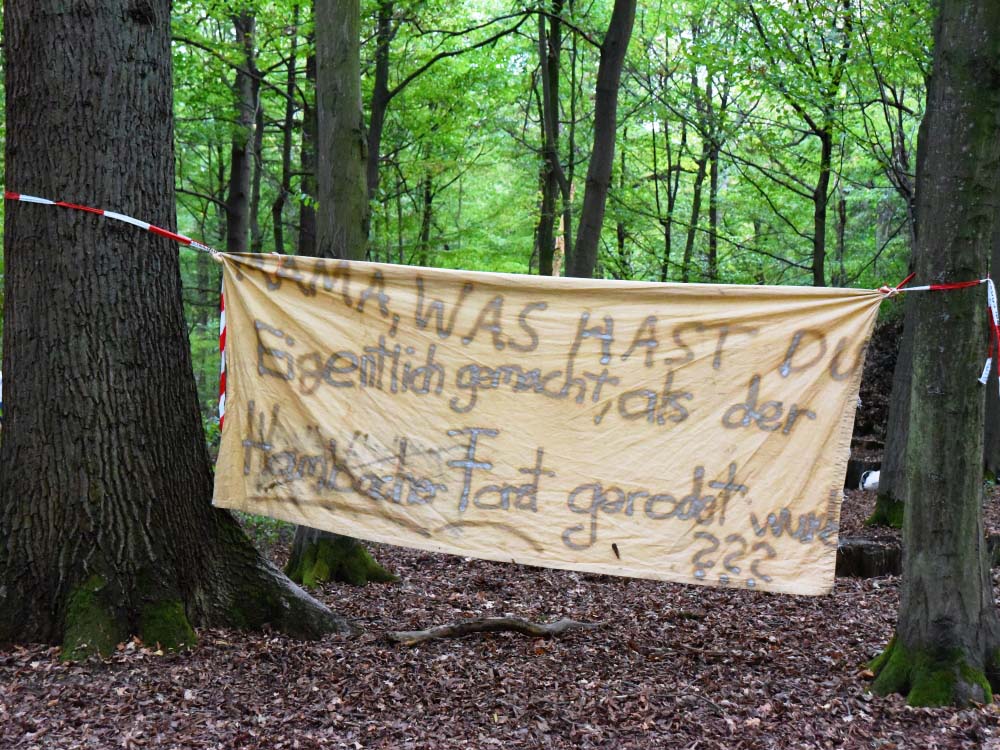 MAMA, WAS HAST DU
Eigentlich gemacht, als der
Hambacher Forst gerodet wurde
???